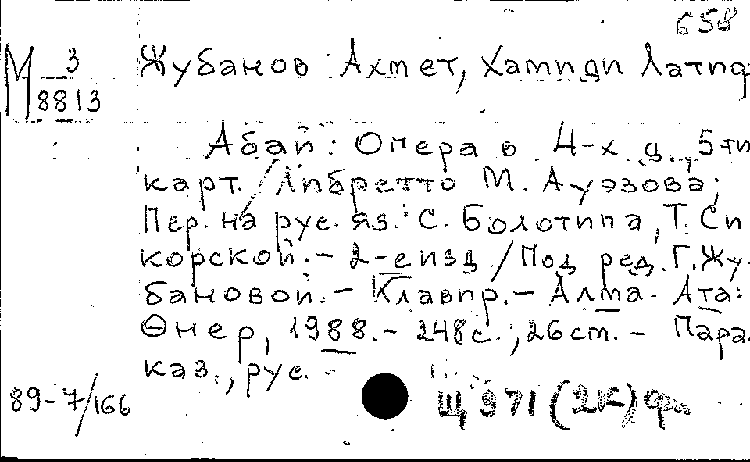 658
М 3/8813
Жубанов Ахмет, Хамиди Латиф
Абай: Опера в 4-х д., 5-ти
карт. / Либретто М. Ауэзова;
Пер. на рус. яз.: С. Болотина, Т. Си
корской. - 2-е изд / Под ред. Г. Жу-
бановой. - Клавир. - Алма-Ата:
Өнер, 1988. - 248с.; 26cm. - Пара.
каз., рус. -
89-7/166
Щ 971(2К)